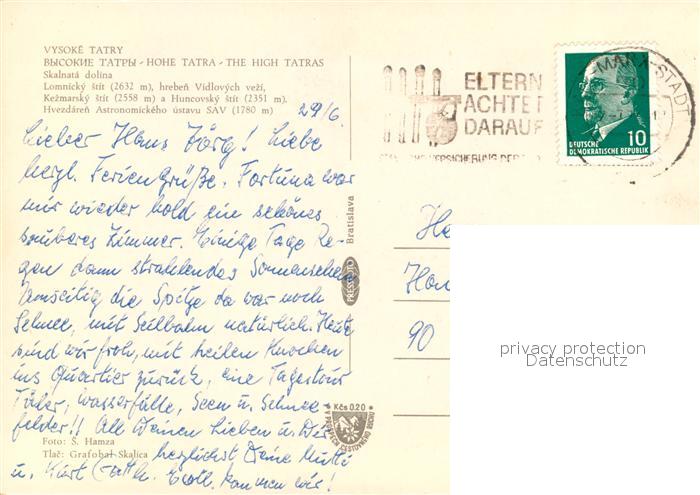 VYSOKÉ TATRY
ВЫСОКИЕ ТАТРЫ - HOHE TATRA - THE HIGH TATRAS
Skalnatá dolina
Lomnický štít (2632 m), hrebeň Vidlových veží,
Kežmarský štít (2558 m) a Huncovský štít (2351 m).
Hvezdáreň Astronomického ústavu SAV (1780 m)
29/6.
Lieber Hans Jörg! Liebe
herzl. Feriengrüße. Fortuna war
mir wieder hold ein schönes
sauberes Zimmer. Einige Tage Re-
gen dann strahlendes Sonnenschein
die Spitze da war noch
Schnee, mit Seilbahn natürlich. Heute
sind wir froh, mit heilen Knochen
ins Quartier zurück, eine Tagestour
Täler, Wasserfälle, Seen u. Schnee-
felder!! All Deinen Lieben u. Dir
Foto: Š. Hamza
Tlač: Grafobal Skalica
herzlichst Deine Mutti
u. Kurt kommen wir!
PRESSFOTO Bratislava
Kčs 0.20
ELTERN
ACHTET
DARAUF
MARX-STADT
10
DEUTSCHE
DEMOKRATISCHE REPUBLIK
90
privacy protection
Datenschutz